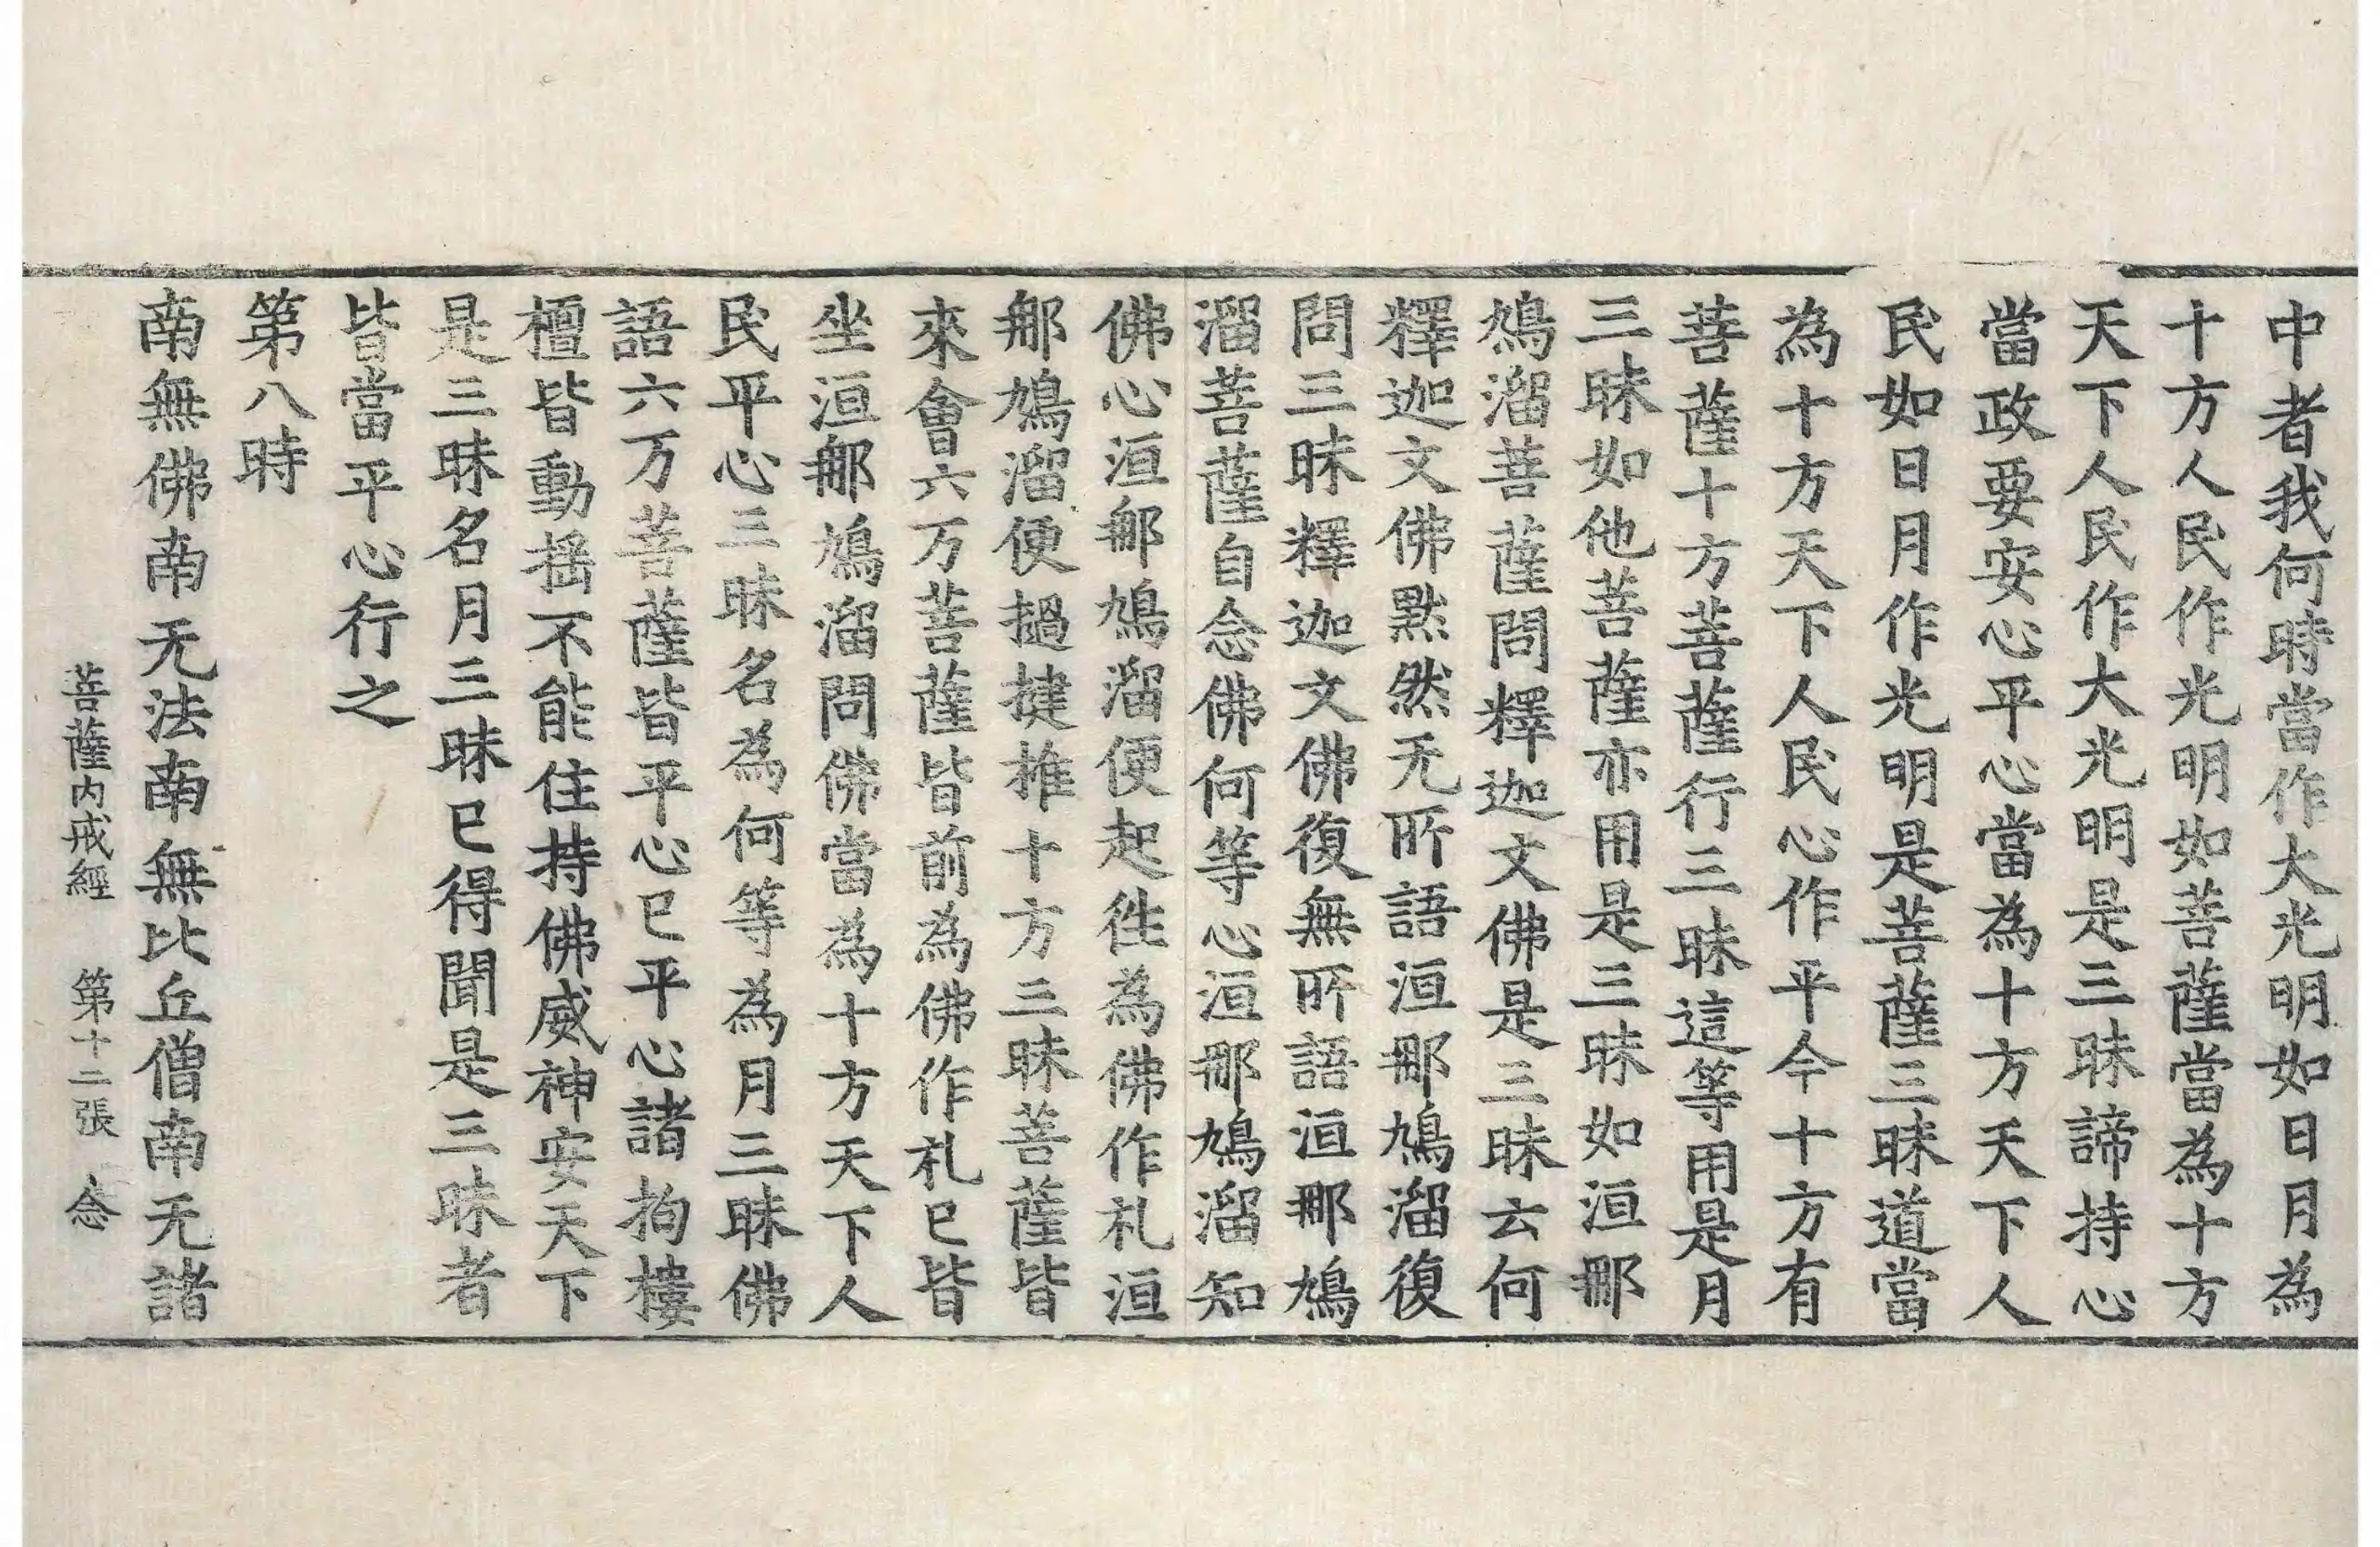 中者我何時當作大光明如日月為
十方人民作光明如菩薩當為十方
天下人民作大光明是三昧諦持心
當政要安心平心當為十方天下人
民如日月作光明是菩薩三昧道當
為十方天下人民心作平今十方有
菩薩十方菩薩行三昧這等用是月
三昧如他菩薩亦用是三昧如洹𨚗
鳩溜菩薩問釋迦文佛是三昧云何
釋迦文佛黙然无所語洹𨚗鳩溜復
問三昧釋迦文佛復無所語洹𨚗鳩
溜菩薩自念佛何等心洹𨚗鳩溜知
佛心洹𨚗鳩溜便起徃為佛作札洹
𨚗鳩溜便撾揵椎十方三昧菩薩皆
來會六万菩薩皆前為佛作札已皆
坐洹𨚗鳩溜問佛當為十方天下人
民平心三昧名為何等為月三昧佛
語六万菩薩皆平心已平心諸拘樓
檀皆動揺不能住持佛威神安天下
是三昧名月三昧已得聞是三昧者
皆當平心行之
第八時
南無佛南无法南無比丘僧南无諸
菩薩内戒經 第十二張 念